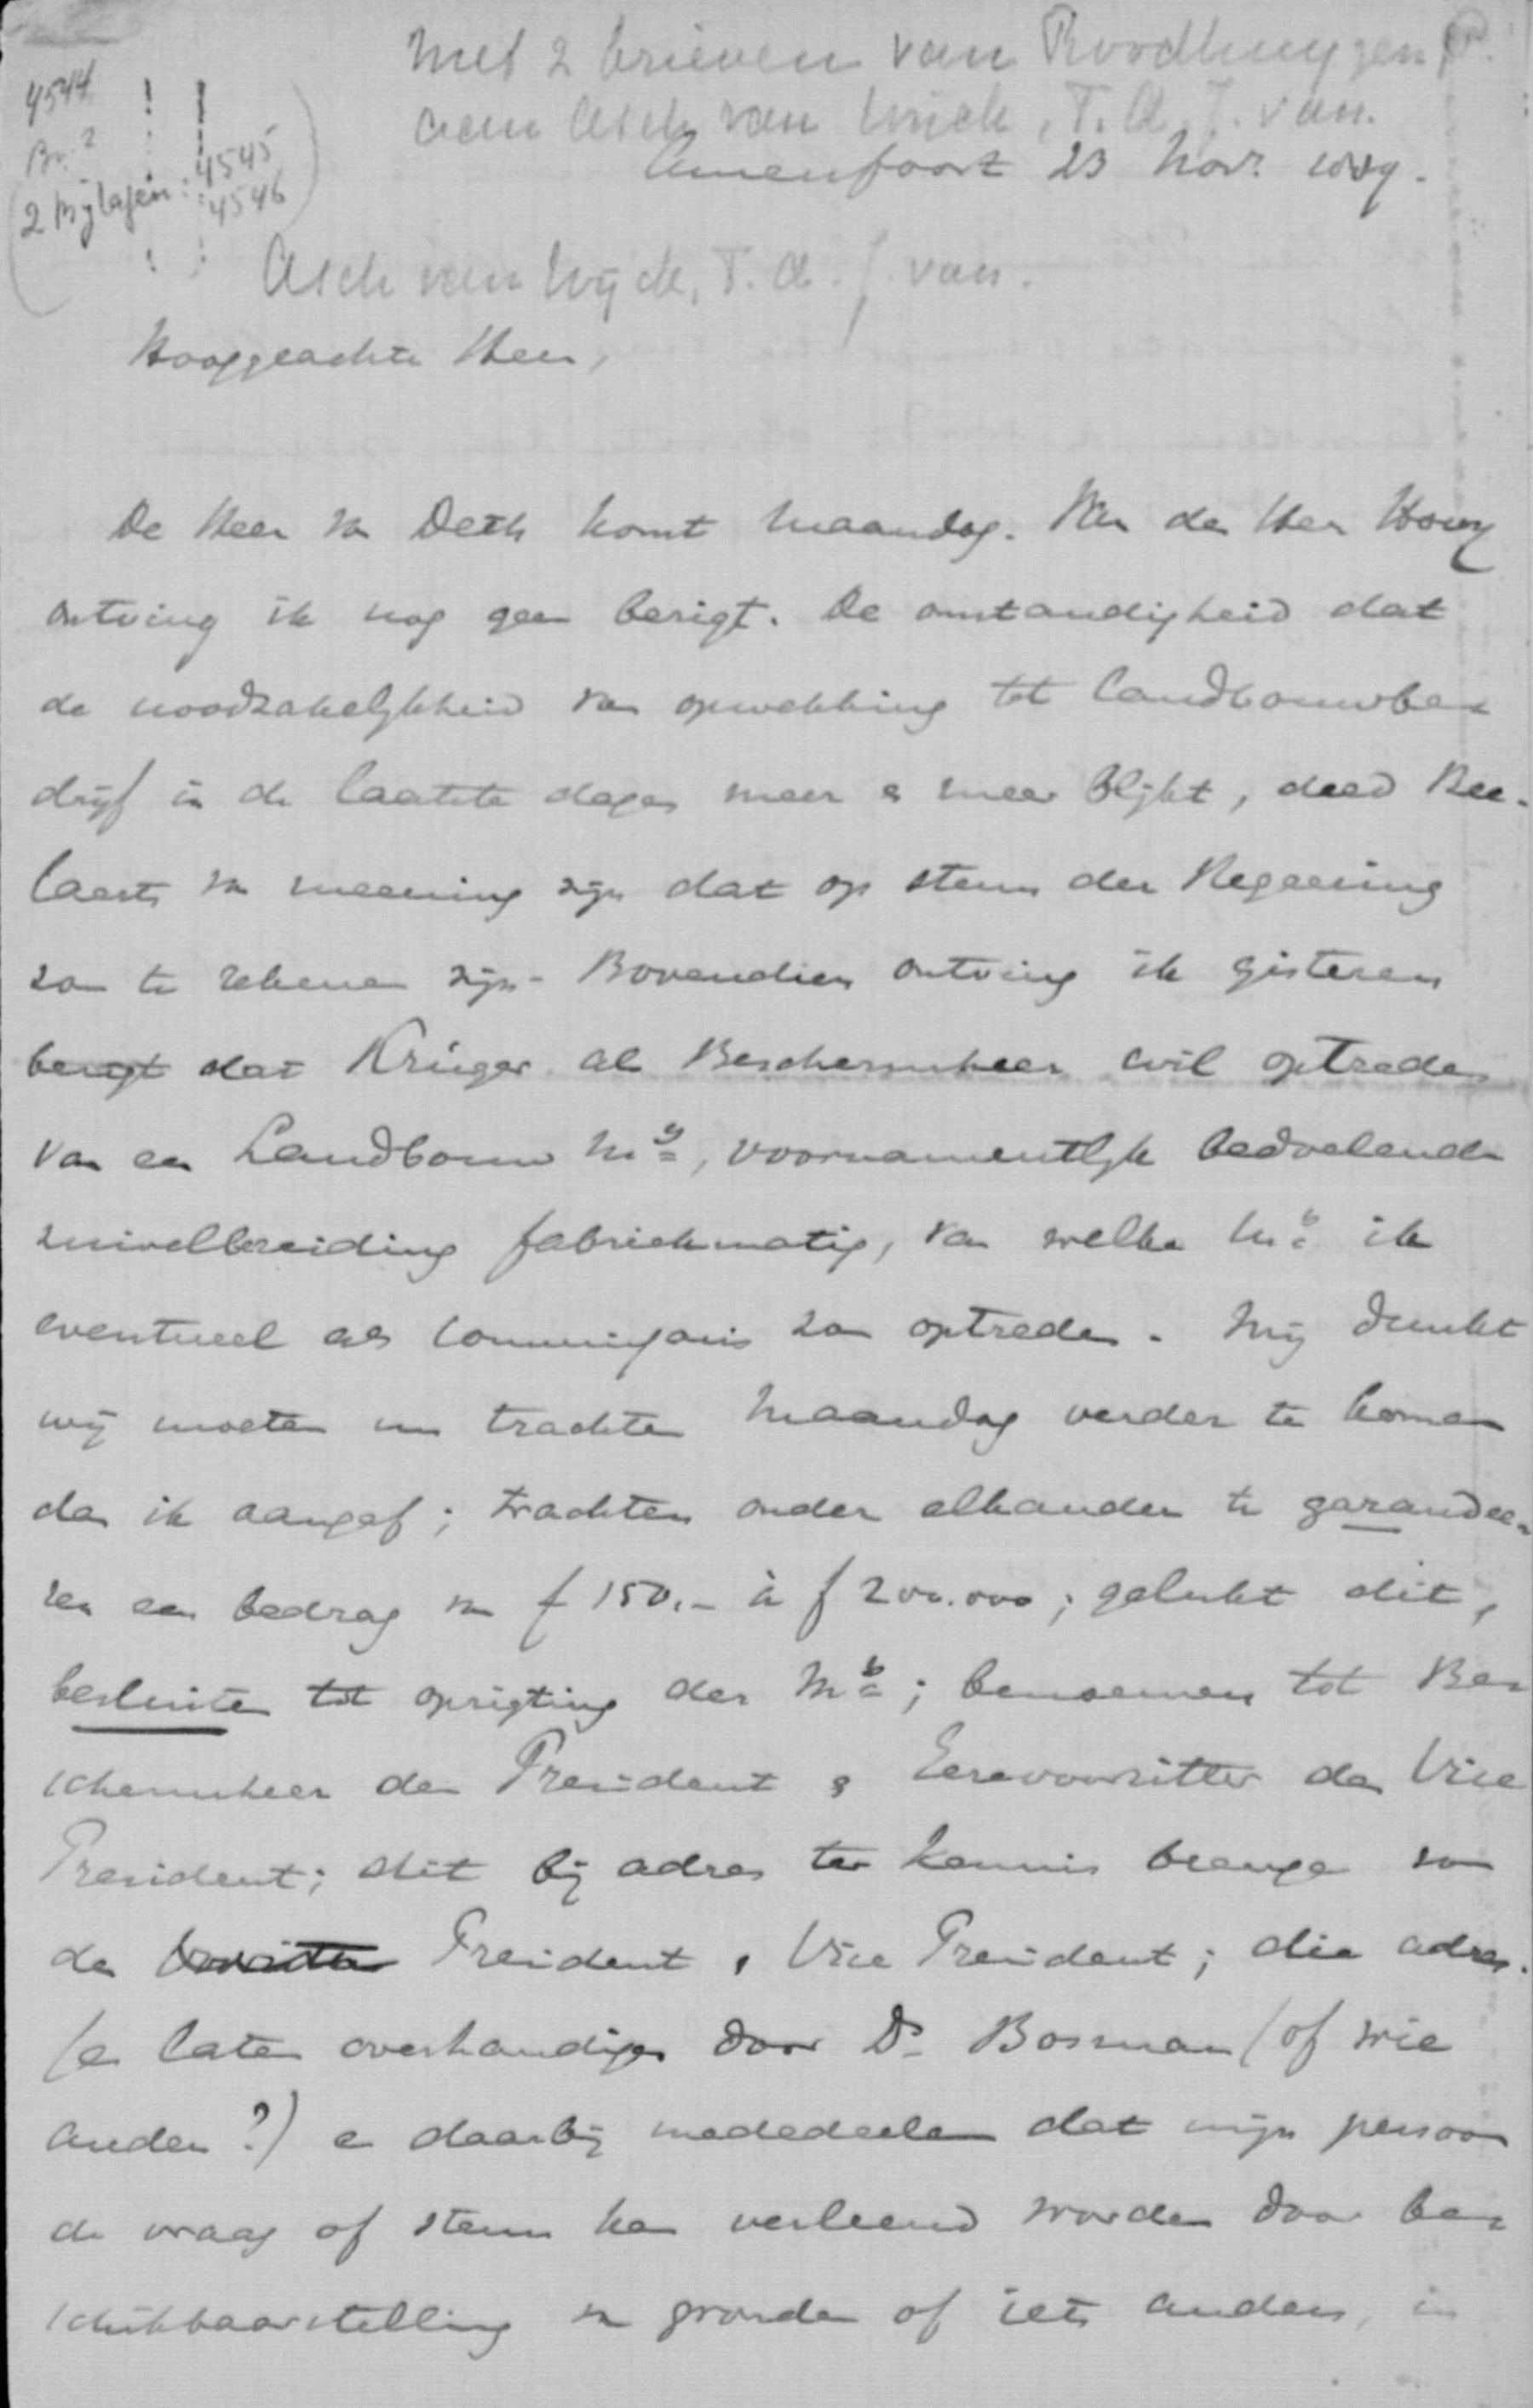 Met 2 brieven van Roodhuyzen
aan Asch van Wijck, T. A. J. van.
4544
Br. 2
2 bijlagen: 4545
4546
Amersfoort 23 Nov. 1889.
Asch van Wijck, T. A. J. van.
Hooggeachte Heer,
De Heer v Deth komt Maandag. Van den Heer Hovy
ontving ik nog geen berigt. De omstandigheid dat
de noodzakelijkheid van opwekking tot landbouwbe-
drijf in de laatste dagen meer en meer blijkt, deed Bee-
laerts van meening zijn dat op steun der Regeering
zou te rekenen zijn. Bovendien ontving ik gisteren
berigt dat Krüger als Beschermheer wil optreden
van een Landbouw Mij, voornamentlijk bedoelende
zuivelbereiding fabriekmatig, van welke Mij ik
eventueel als Commissaris zou optreden. Mij dunkt
wij moeten nu trachten Maandag verder te komen
dan ik aangaf; trachten onder elkander te garandee-
ren een bedrag van f 150.- à f 200.000; gelukt dit,
besluiten tot oprigting der Mij; benoemen tot Be-
schermheer den President & Eerevoorzitter den Vice
President; dit bij adres ter kennis brengen van
den President & Vice President; die adres-
sen laten overhandigen door Ds Bosman (of wie
anders?) en daarbij mededeelen dat mijn persoon
de vraag of steun kan verleend worden door be-
schikbaarstelling van gronden of iets anders, in